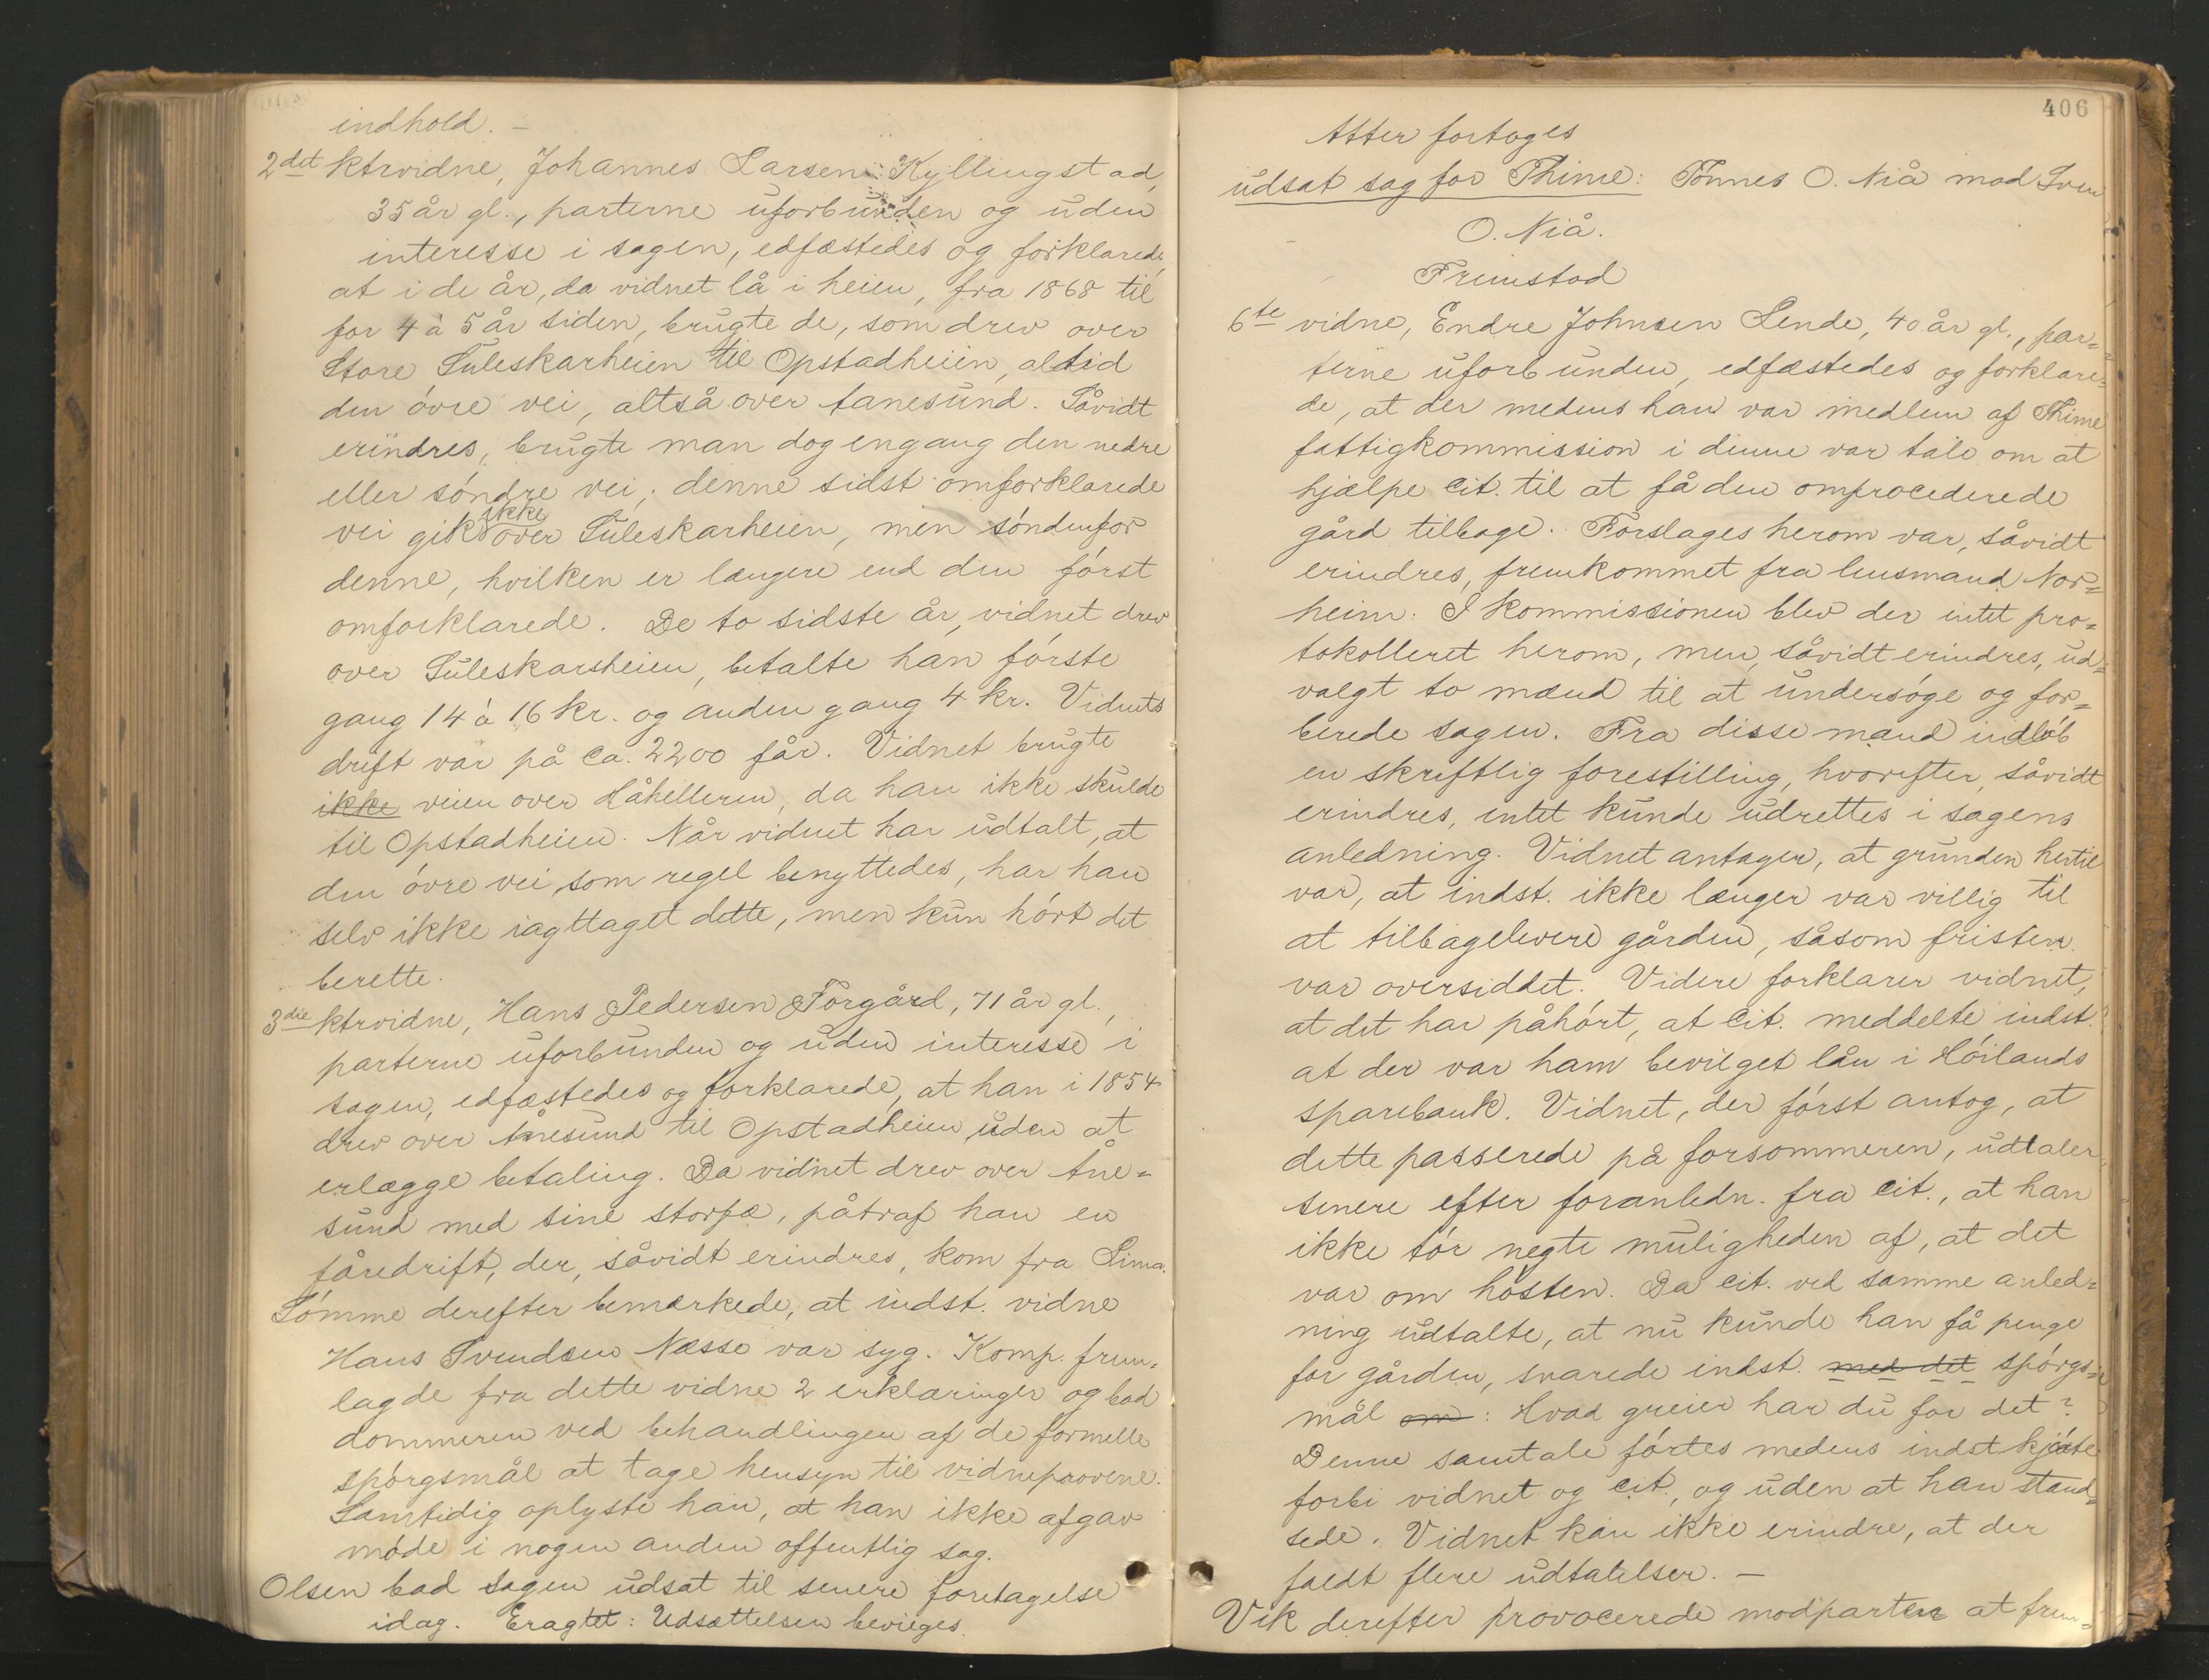 indhold. –
2det ktrvidne, Johannes Larsen Kyllingstad,
35 år gl., parterne uforbunden og uden
interesse i sagen, edfæstedes og forklarede,
at i de år, da vidnet lå i heien, fra 1868 til
for 4 à 5 år siden, brugte de, som drev over
Store Suleskarheien til Opstadheien, altid
den óvre vei, altså over tanesund. Såvidt
erindres, brugte man dog engang den nedre
eller sóndre vei; denne sidst omforklarede
vei gik ikke over Suleskarheien, men sóndenfor
denne, hvilken er længere end den fórst
omforklarede. De to sidste år, vidnet drev
over Suleskarsheien, betalte han fórste
gang 14 à 16 kr. og anden gang 4 kr. Vidnets
drift var på ca. 2200 får. Vidnet brugte
ikke veien over Håhelleren, da han ikke skulde
til Opstadheien. Når vidnet har udtalt, at
den óvre vei som regel benyttedes, har han
selv ikke iagttaget dette, men kun hórt det
berette.
3die ktrvidne, Hans Pedersen Forgård, 71 år gl.,
parterne uforbunden og uden interesse i
sagen, edfæstedes og forklarede, at han i 1854
drev over tånesund til Opstadheien uden at
erlægge betaling. Da vidnet drev over tåne=
sund med sine storfæ, påtraf han en
fåredrift, der, såvidt erindres, kom fra Lima.
Sómme derefter bemærkede, at indst. vidne
Hans Svendsen Næsse var syg. Komp. frem=
lagde fra dette vidne 2 erklæringer og bad
dommeren ved behandlingen af de formelle
spórgsmål at tage hensyn til vidneprovene.
Samtidig oplyste han, at han ikke afgav
móde i nogen anden offentlig sag.
Olsen bad sagen udsat til senere foretagelse
idag. Eragtet: Udsættelsen bevilges.
406
Atter fortoges
udsat sag for Thime: Tónnes O. Niå mod Sven
O. Niå.
Fremstod
6te vidne, Endre Johnsen Lende, 40 år gl., par=
terne uforbunden, edfæstedes og forklare=
de, at der medens han var medlem af Thime
fattigkommission i denne var tale om at
hjælpe cit. til at få den omprocederede
gård tilbage. Forslages herom var, såvidt
erindres, fremkommet fra lensmand Nor=
heim. I kommissionen blev der intet pro=
tokolleret herom, men, såvidt erindres, ud=
valgt to mænd til at undersóge og for=
berede sagen. Fra disse mænd indlób
en skriftlig forestilling, hvorefter, såvidt
erindres, intet kunde udrettes i sagens
anledning. Vidnet antager, at grunden hertil
var, at indst. ikke længer var villig til
at tilbagelevere gården, såsom fristen
var oversiddet. Videre forklarer vidnet,
at det har påhórt, at cit. meddelte indst.
at der var ham bevilget lån i Hóilands
sparebank. Vidnet, der fórst antog, at
dette passerede på forsommeren, udtaler
senere efter foranledn. fra cit., at han
ikke tór negte muligheden af, at det
var om hósten. Da cit. ved samme anled=
ning udtalte, at nu kunde han få penge
for gården, svarede indst. med det spórgs=
mål om: Hvad greier har du for det?
Denne samtale fórtes medens indst kjórte
forbi vidnet og cit., og uden at han stand=
sede. Vidnet kan ikke erindre, at der
faldt flere udtalelser. –
Vik derefter provocerede modparten at frem=